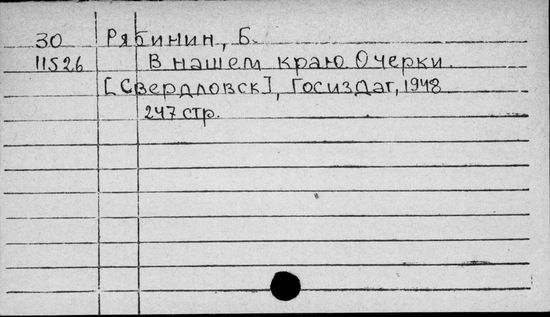 30 Рябинин, Б.
11526 В нашем краю. Очерки.
[Свердловск], Госиздат, 1948
247 стр.